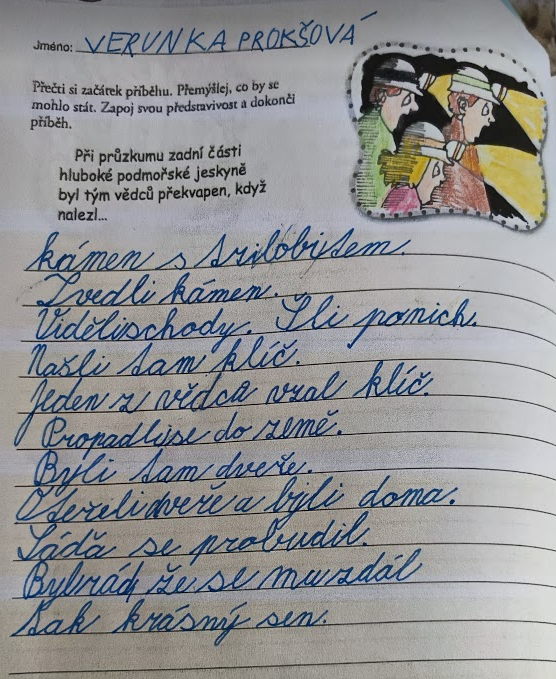 Jméno: VERUNKA PROKŠOVÁ
Přečti si začátek příběhu. Přemýšlej, co by se
mohlo stát. Zapoj svou představivost a dokonči
příběh.
Při průzkumu zadní části
hluboké podmořské jeskyně
byl tým vědců překvapen, když
nalezl...
kámen s trilobitem.
Zvedli kámen.
Viděli schody. Šli po nich.
Našli tam klíč.
Jeden z vědca vzal klíč.
Propadli se do země.
Byli tam dveře.
Otevřeli dveře a byli doma.
Láďa se probudil.
Byl rád, že se mu zdál
tak krásný sen.